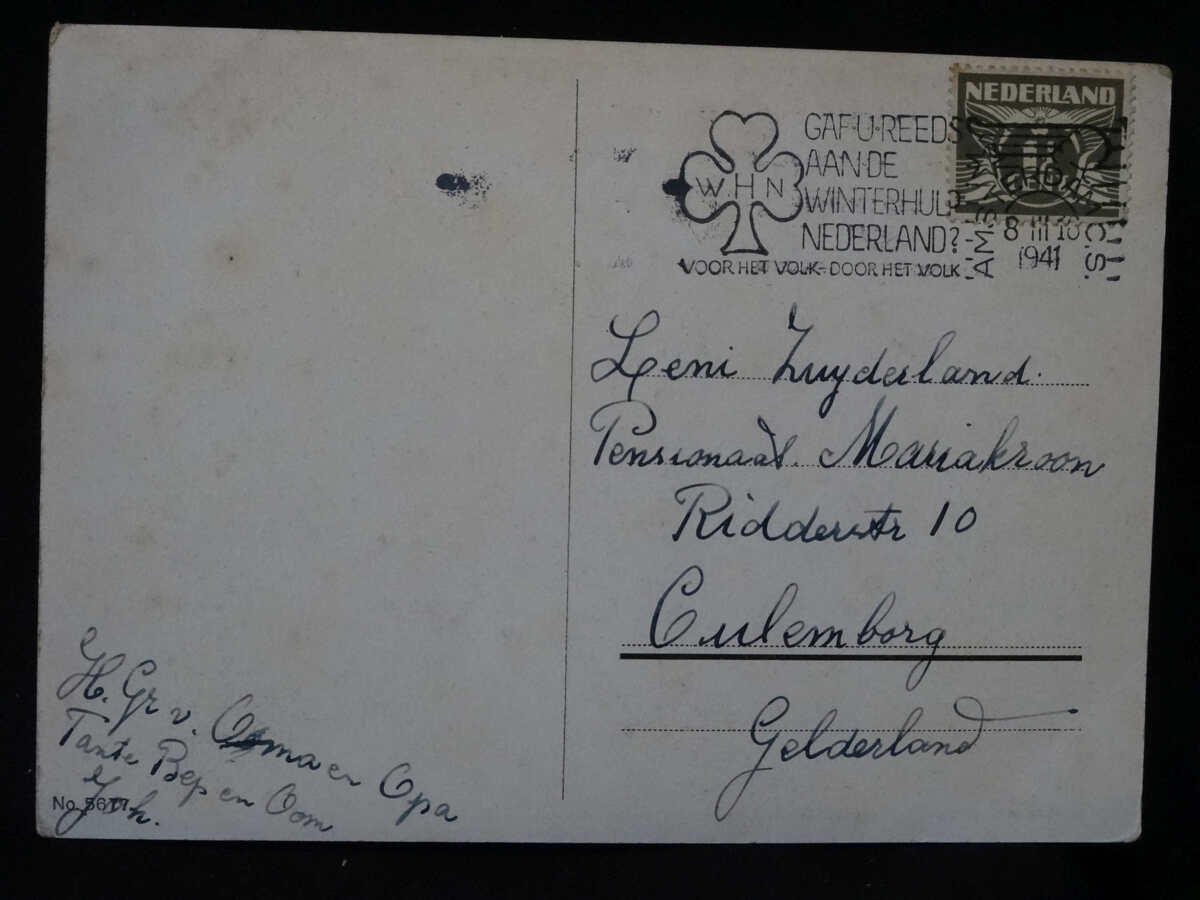 NEDERLAND
GAF·U·REEDS
AAN·DE
WINTERHULP
NEDERLAND?
VOOR HET VOLK-DOOR HET VOLK
W H N
AMSTERDAM C.S.
8 III 18
1941
Leni Zuyderland.
Pensionaat. Mariakroon
Ridderstr 10
Culemborg
Gelderland
H. Gr v. Oma en Opa
Tante Bep en Oom
Joh.
No. 5617